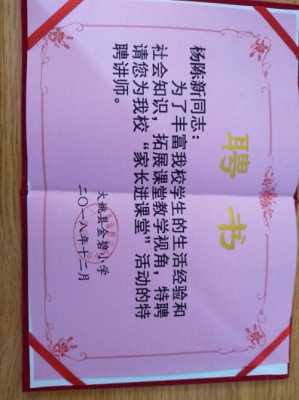 聘书
杨陈新同志：
为了丰富我校学生的生活经验和
社会知识，拓展课堂教学视角，特聘
请您为我校“家长进课堂”活动的特
聘讲师。
大姚县金碧小学
二〇一八年十二月